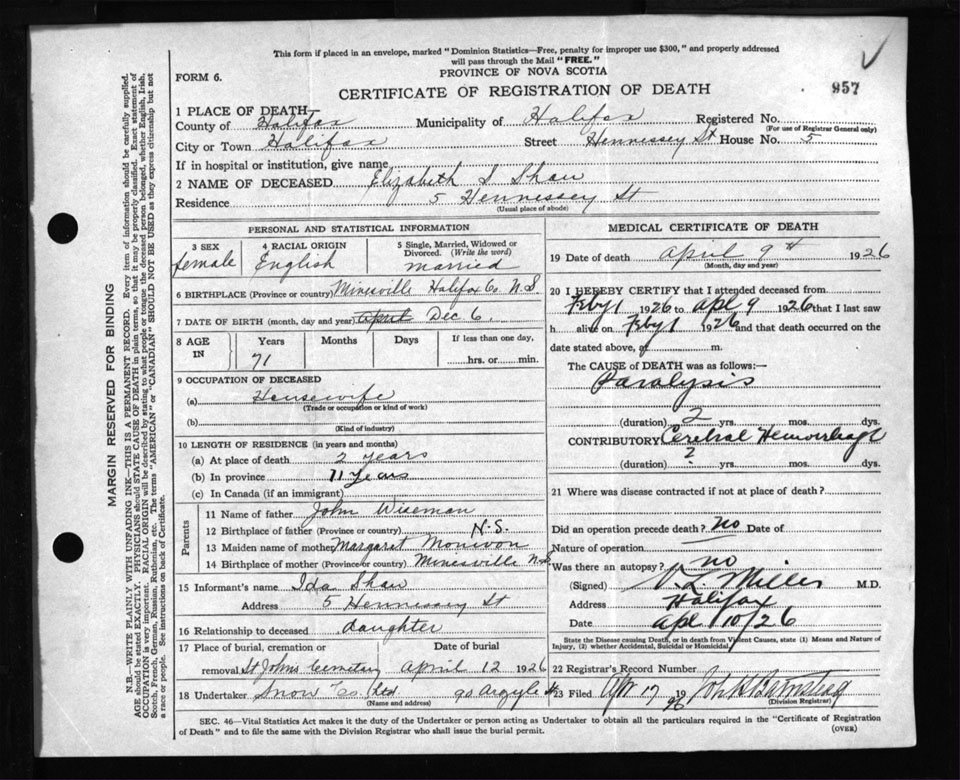 This form if placed in an envelope, marked "Dominion Statistics—Free, penalty for improper use $300," and properly addressed
will pass through the Mail "FREE."
FORM 6.
PROVINCE OF NOVA SCOTIA
CERTIFICATE OF REGISTRATION OF DEATH
957
1 PLACE OF DEATH—
County of Halifax Municipality of Halifax Registered No.
(For use of Registrar General only)
City or Town Halifax Street Hennessey St House No. 5
If in hospital or institution, give name
2 NAME OF DECEASED Elizabeth S Shaw
Residence 5 Hennessey St
(Usual place of abode)
PERSONAL AND STATISTICAL INFORMATION
3 SEX female
4 RACIAL ORIGIN English
5 Single, Married, Widowed or Divorced. (Write the word) married
6 BIRTHPLACE (Province or country) Minesville Halifax Co. N.S
7 DATE OF BIRTH (month, day and year) april Dec 6.
8 AGE IN Years Months Days If less than one day,
71 hrs. or min.
9 OCCUPATION OF DECEASED
(a) Housewife
(Trade or occupation or kind of work)
(b)
(Kind of industry)
10 LENGTH OF RESIDENCE (in years and months)
(a) At place of death 2 years
(b) In province 71 years
(c) In Canada (if an immigrant)
Parents
11 Name of father John Wiseman
12 Birthplace of father (Province or country) N.S.
13 Maiden name of mother Margaret
14 Birthplace of mother (Province or country) Minesville N.S
15 Informant's name Ida Shaw
Address 5 Hennessey St
16 Relationship to deceased daughter
17 Place of burial, cremation or Date of burial
removal St Johns Cemetery April 12 1926
18 Undertaker Snow Co. Ltd 90 Argyle St
(Name and address)
MEDICAL CERTIFICATE OF DEATH
19 Date of death April 9th 1926
(Month, day and year)
20 I HEREBY CERTIFY that I attended deceased from
Feby 1 1926 to apl 9 1926 that I last saw
h alive on Feby 1 1926 and that death occurred on the
date stated above, at m.
The CAUSE OF DEATH was as follows:—
Paralysis
(duration) 2 yrs. mos. dys.
CONTRIBUTORY Cerebral Hemorrhage
(duration) ? yrs. mos. dys.
21 Where was disease contracted if not at place of death?
Did an operation precede death? no Date of
Nature of operation
Was there an autopsy? no
(Signed) V L Miller M.D.
Address Halifax
Date apl 10/26
State the Disease causing Death, or in death from Violent Causes, state (1) Means and Nature of
Injury, (2) whether Accidental, Suicidal or Homicidal
22 Registrar's Record Number
23 Filed Apr 17 1926
(Division Registrar)
SEC. 46—Vital Statistics Act makes it the duty of the Undertaker or person acting as Undertaker to obtain all the particulars required in the "Certificate of Registration
of Death" and to file the same with the Division Registrar who shall issue the burial permit.
(OVER)
MARGIN RESERVED FOR BINDING
N.B.—WRITE PLAINLY WITH UNFADING INK—THIS IS A PERMANENT RECORD. Every item of information should be carefully supplied.
AGE should be stated EXACTLY. PHYSICIANS should STATE CAUSE OF DEATH in plain terms, so that it may be properly classified. Exact statement of
OCCUPATION is very important. RACIAL ORIGIN will be described by stating to what people or tongue the deceased person belonged, whether English, Irish,
Scotch, French, German, Russian, Ruthenian, etc. The terms "AMERICAN" or "CANADIAN" SHOULD NOT BE USED as they express citizenship but not
a race or people. See instructions on back of Certificate.